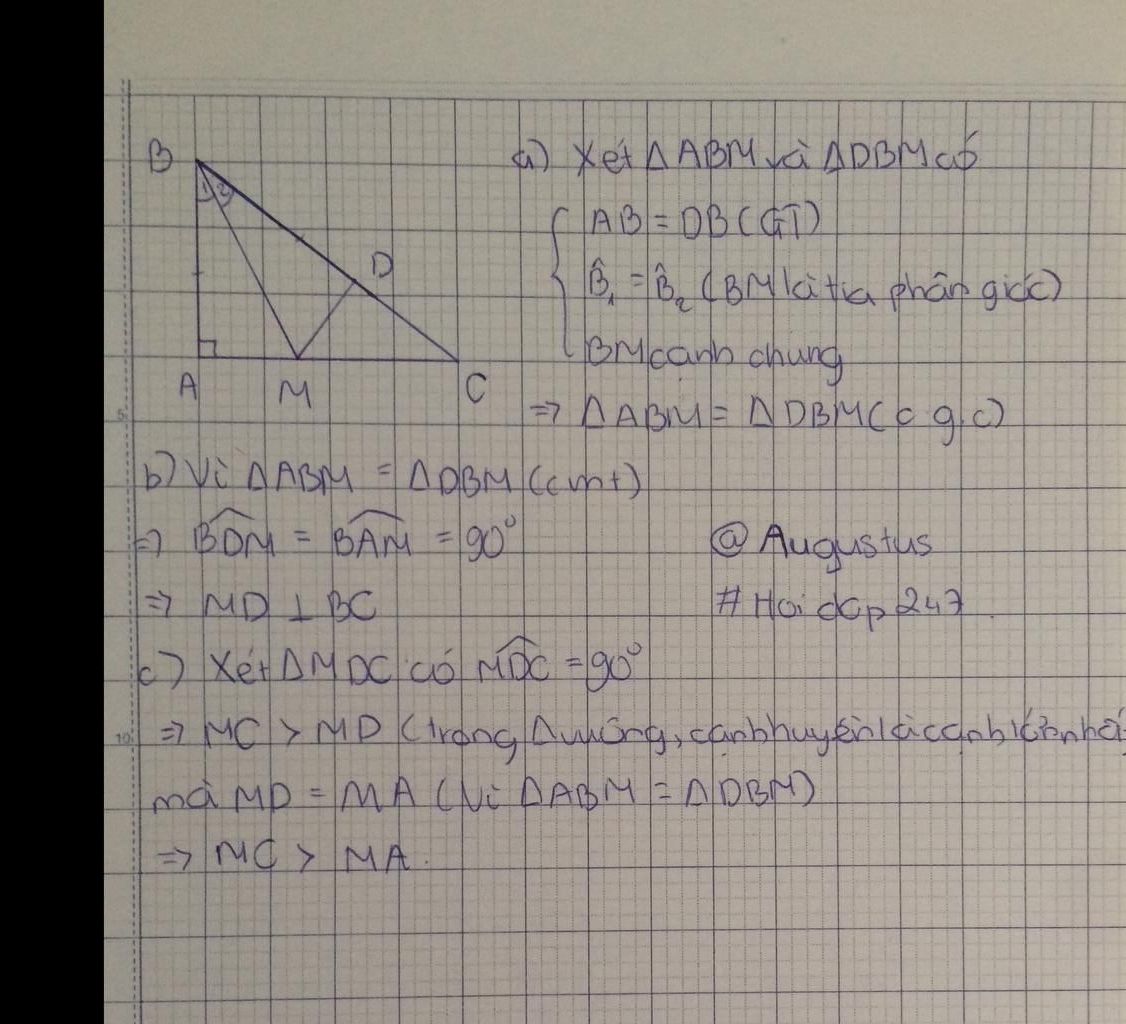 B
D
A
M
C
1
2
a) Xét ΔABM và ΔDBM có
AB = DB (GT)
B̂₁ = B̂₂ (BM là tia phân giác)
BM cạnh chung
=> ΔABM = ΔDBM (c g.c)
b) Vì ΔABM = ΔDBM (cmt)
=> BDM = BAM = 90°
@ Augustus
=> MD ⊥ BC
# Hoidap247
c) Xét ΔMDC có MDC = 90°
=> MC > MD (trong Δ vuông, cạnh huyền là cạnh lớn nhấ
mà MD = MA (Vì ΔABM = ΔDBM)
=> MC > MA.
5
10